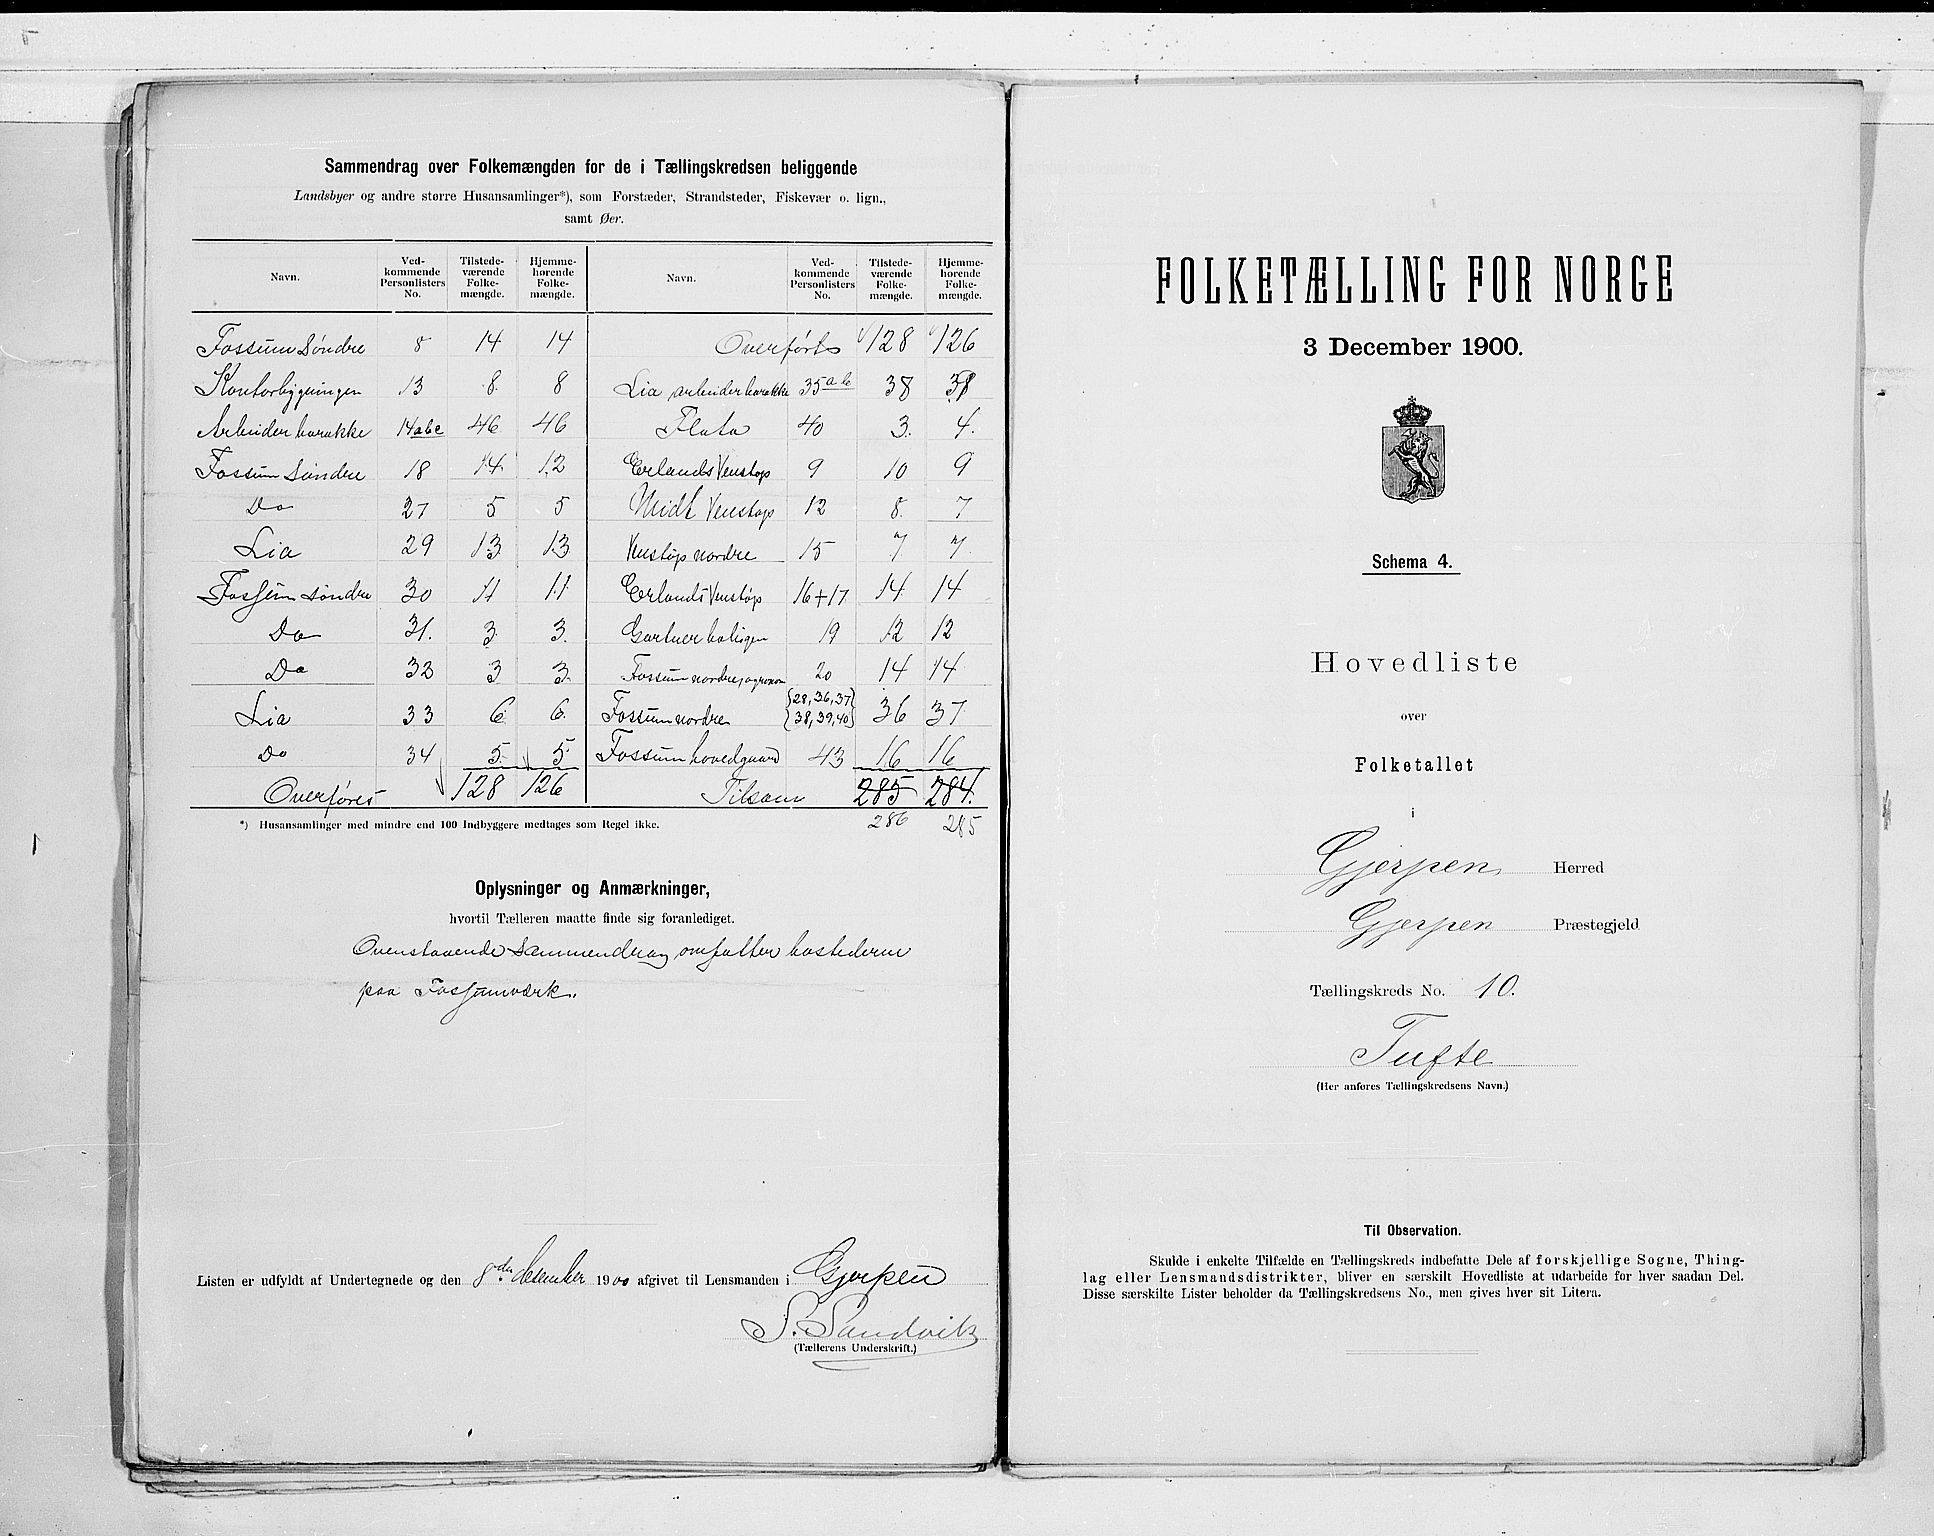 Sammendrag over Folkemængden for de i Tællingskredsen beliggende
Landsbyer og andre større Husansamlinger*), som Forstæder, Strandsteder, Fiskevær o. lign.,
samt Øer.
Navn. Ved-kommende Personlisters No. Tilstede-værende Folke-mængde. Hjemme-hørende Folke-mængde. Navn. Ved-kommende Personlisters No. Tilstede-værende Folke-mængde. Hjemme-hørende Folke-mængde.
Fossum Søndre 8 14 14 Overført 128 126
Kontorbygningen 13 8 8 Lia arbeiderbarakke 35 a b 38 38
Arbeiderbarakke 14 abc 46 46 Flata 40 3. 4.
Fossum Søndre 18 14 12 Erlands Venstøp 9 10 9
Do 27 5 5 Midt Venstøp 12 8. 7
Lia 29 13 13 Venstøp nordre 15 7 7.
Fossum søndre 30 11 11 Erlands Venstøp 16+17 14 14
Do 31. 3 3. Gartnerboligen 19 12 12
Do 32 3 3. Fossum nordre, agronom 20 14 14
Lia 33 6 6. Fossum nordre {28, 36, 37 38, 39, 40} 36 37
Do 34 5. 5 Fossum hovedgaard 43 16 16
Overføres 128 126 Tilsam 285 284.
286 285
*) Husansamlinger med mindre end 100 Indbyggere medtages som Regel ikke.
Oplysninger og Anmærkninger,
hvortil Tælleren maatte finde sig foranlediget.
Ovenstaaende Sammendrag omfatter bostederne
paa Fossumværk.
Listen er udfyldt af Undertegnede og den 8de desember 1900 afgivet til Lensmanden i Gjerpen
S. Sandvik
(Tællerens Underskrift.)
FOLKETÆLLING FOR NORGE
3 December 1900.
Schema 4.
Hovedliste
over
Folketallet
i
Gjerpen Herred
Gjerpen Præstegjeld
Tællingskreds No. 10.
Tufte
(Her anføres Tællingskredsens Navn.)
Til Observation.
Skulde i enkelte Tilfælde en Tællingskreds indbefatte Dele af forskjellige Sogne, Thing-
lag eller Lensmandsdistrikter, bliver en særskilt Hovedliste at udarbeide for hver saadan Del.
Disse særskilte Lister beholder da Tællingskredsens No., men gives hver sit Litera.